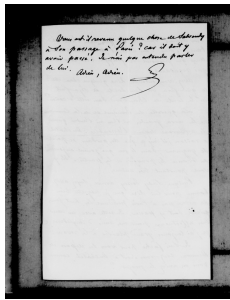 Vous est-il revenu quelque chose de
à son passage à Paris ? car il doit y
avoir passé. Je n'ai pas entendu parler
de lui.
Adieu, Adieu.